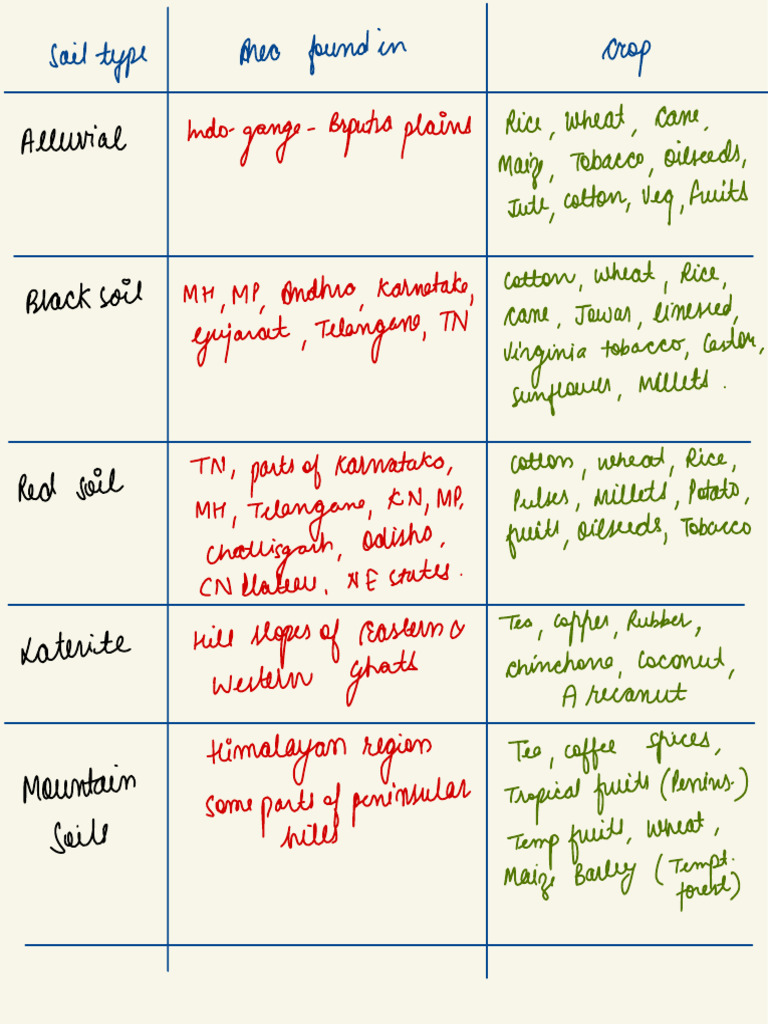 Soil type
Area found in
Crop
Alluvial
Indo-gange - Brputra plains
Rice, Wheat, Cane,
Maize, Tobacco, Oilseeds,
Jute, cotton, Veg, fruits
Black soil
MH, MP, Andhra, Karnataka,
Gujarat, Telangana, TN
Cotton, wheat, Rice,
Cane, Jowar, linseed,
Virginia tobacco, Castor,
sunflower, Millets.
Red soil
TN, parts of Karnataka,
MH, Telangana, KN, MP,
Chattisgarh, Odisha,
CN Plateau, NE states.
Cotton, wheat, Rice,
Pulses, Millets, Potato,
fruits, Oilseeds, Tobacco
Laterite
Hill slopes of Eastern &
Western Ghats
Tea, coffee, Rubber,
Chinchona, Coconut,
Arecanut
Mountain
Soils
Himalayan region
Some parts of peninsular
hills
Tea, coffee spices,
Tropical fruits (Penins.)
Temp fruits, Wheat,
Maize Barley (Tempt.
forest)